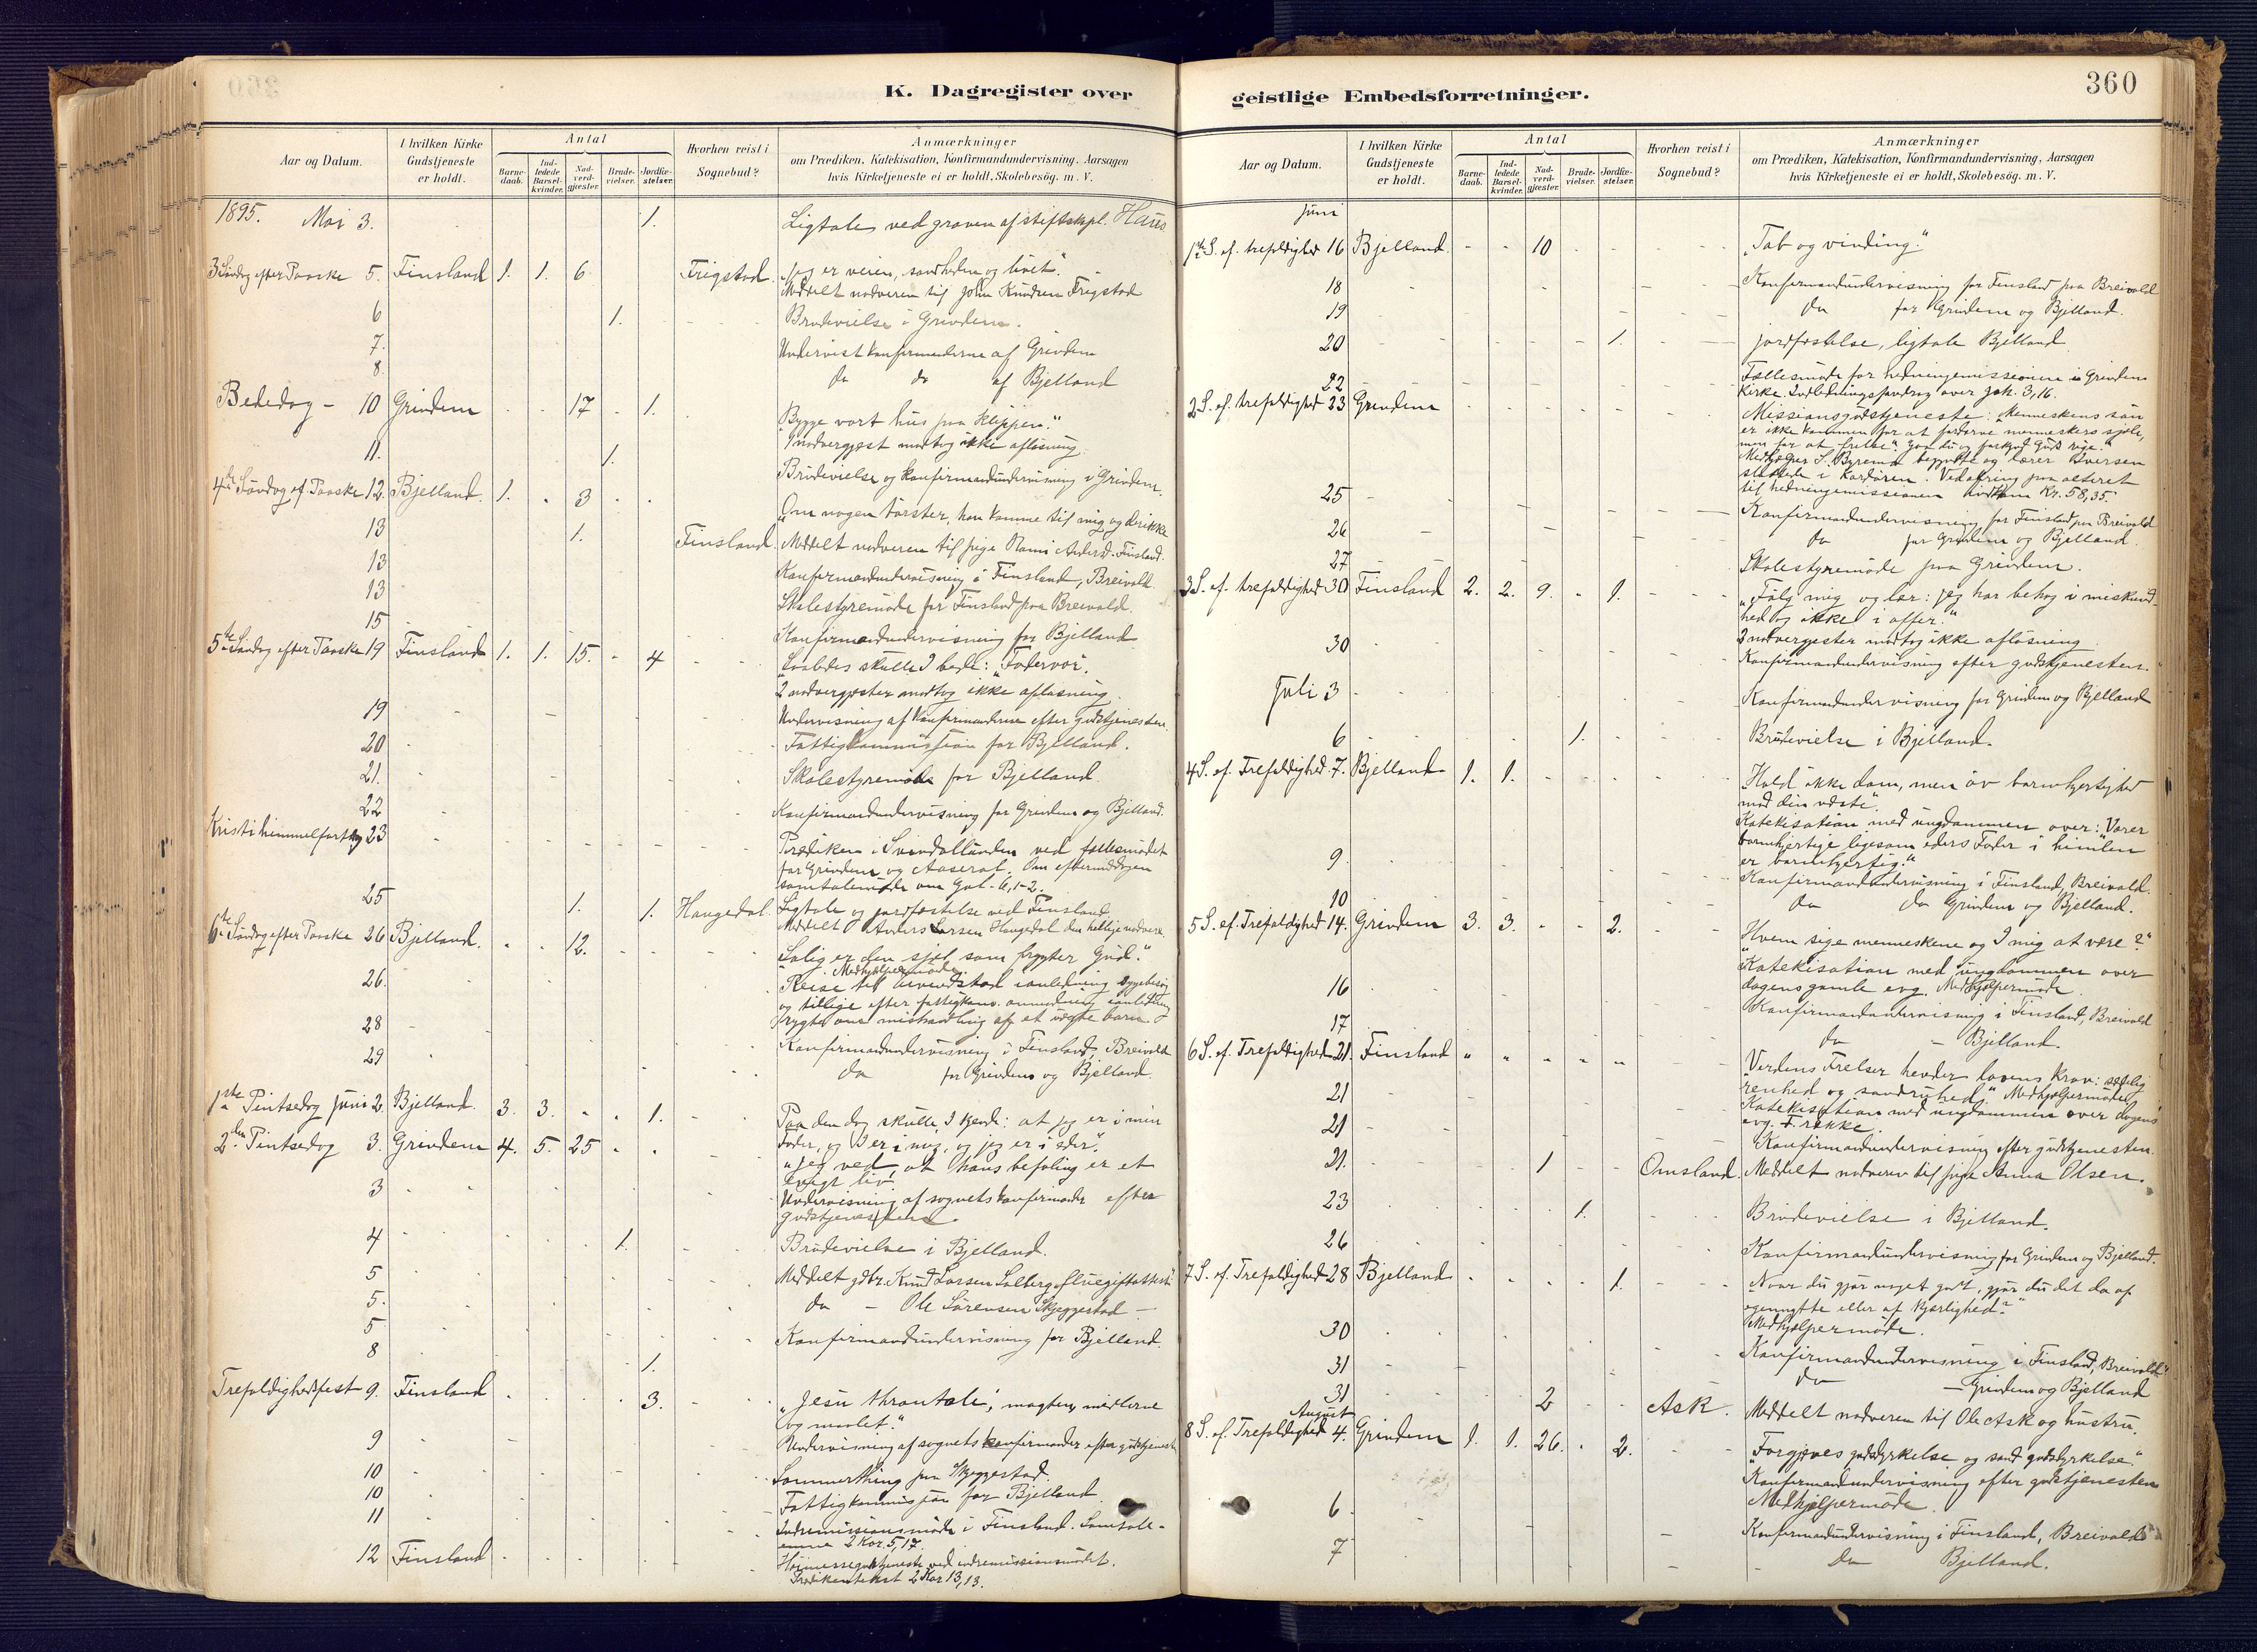 K. Dagregister over
Aar og Datum.
I hvilken Kirke Gudstjeneste er holdt.
Antal
Barnedaab.
Indledede Barselkvinder.
Nadverdgjæster.
Brudevielser.
Jordfæstelser.
Hvorhen reist i Sognebud?
Anmærkninger
om Prædiken, Katekisation, Konfirmandundervisning, Aarsagen
hvis Kirketjeneste ei er holdt, Skolebesøg. m. V.
1895. Mai 3. 1. Ligtale ved graven af stiftskapl. Haus
3 Søndag efter Paaske 5. Finsland 1. 1. 6 Frigstad. „Jeg er veien, sandheden og livet“.
Meddelt nadveren til John Knudsen Frigstad
6 1. Brudevielse i Grindem.
7. Undervist konfirmanderne af Grindem
8. do do af Bjelland
Bededag - 10 Grindem 17 - 1. „Bygge vort hus paa klippen.“
1 nadvergjest modtog ikke afløsning.
11. 1. Brudevielse og konfirmandundervisning i Grindem.
4de Søndag ef. Paaske 12. Bjelland. 1. 3 „Om nogen tørster, han komme til mig og drikke
13 1. Finsland. Meddelt nadveren til pige Anders. Finsland.
13 Konfirmandundervisning i Finsland, Breivold.
13 Skolestyremøde for Finsland paa Breivold.
15 Konfirmandundervisning for Bjelland
5te Søndag efter Paaske 19 Finsland 1. 1. 15. - 4 „Saaledes skulle I bede: Fadervor“.
2 nadvergjester modtog ikke afløsning.
19 Undervisning af konfirmanderne efter gudstjenesten.
20 Fattigkommission for Bjelland.
21. Skolestyremøde for Bjelland
22 Konfirmandundervisning for Grindem og Bjelland.
Kristi himmelfartsdag 23 Prædiken i ved fællesmødet
for Grindem og Aaseral. Om eftermiddagen
samtalemøde om Gal. 6, 1-2.
25 1. 1. Haugedal. Ligtale og jordfæstelse ved Finsland.
Meddelt Anders Larsen Haugedal den hellige nadvere.
6te Søndag efter Paaske 26 Bjelland. 12. „Salig er den sjel som frygter Gud.“
Medhjelpermøde
26. Reise til i anledning sygebesøg
og tillige efter fattigkom. anmodning i anledning
rygte om mishandling af et barn
28 Konfirmandundervisning i Finsland, Breivold
29 do for Grindem og Bjelland.
1ste Pintsedag Juni 2. Bjelland. 3. 3. 1. Paa den dag skulle I kjende: at jeg er i min
Fader, og I er i mig, og jeg er i eder“.
2den Pintsedag 3. Grindem 4. 5. 25 „Jeg ved, at hans befaling er et
evigt liv
3 Undervisning af sognets konfirmander efter
gudstjenesten.
4 1. Brudevielse i Bjelland.
5 Meddelt gdbr. Knud Larsen Solberg
5. do - Ole Sørensen Skjeggestad -
5 Konfirmandundervisning for Bjelland.
8 1.
Trefoldighedsfest 9. Finsland 3. „Jesu throntale“; magten, midlerne
og maalet.“
9 Undervisning af sognets konfirmander efter gudstjenesten
10 Sommerthing paa Skjeggestad.
10 Fattigkommission for Bjelland
11 Indremissionsmøde i Finsland. Samtale-
emne 2 Kor. 5, 17.
12 Finsland Høimessegudstjeneste ved indremissionsmødet.
Prædikentekst 2 Kor 13, 13.
geistlige Embedsforretninger.
360
Aar og Datum.
I hvilken Kirke Gudstjeneste er holdt.
Antal
Barnedaab.
Indledede Barselkvinder.
Nadverdgjæster.
Brudevielser.
Jordfæstelser.
Hvorhen reist i Sognebud?
Anmærkninger
om Prædiken, Katekisation, Konfirmandundervisning, Aarsagen
hvis Kirketjeneste ei er holdt, Skolebesøg. m. V.
Juni
1ste S. ef. trefoldighed 16 Bjelland. 10 „Tab og vinding.“
18 Konfirmandundervisning for Finsland paa Breivold
19 do for Grindem og Bjelland.
20 1. jordfæstelse, ligtale Bjelland
22 Fællesmøde for hedningemissionen i Grindem
Kirke. Indledningsforedrag over Joh. 3, 16.
2 S. ef. trefoldighed 23 Grindem Missionsgudstjeneste: Menneskens søn
er ikke kommen for at fordærve menneskers sjele,
men for at frelse“. Guds rige“.
Medhjelper S. Byremo og lærer Iversen
i Kordøren. Vedofring paa alteret
til hedningemissionen Kr. 58,35.
25 Konfirmandundervisning for Finsland paa Breivold
26 do for Grindem og Bjelland.
27 Skolestyremøde paa Grindem.
3 S. ef. trefoldighed 30 Finsland 2. 2. 9. 1. „Følg mig og lær: jeg har behag i miskund-
hed og ikke i offer.“
3 nadvergjester modtog ikke afløsning
30 Konfirmandundervisning efter gudstjenesten.
Juli 3 Konfirmandundervisning for Grindem og Bjelland
6 1. Brudevielse i Bjelland.
4 S. ef. Trefoldighed 7. Bjelland 1. 1. Hold ikke dom, men øv barmhjertighed
mod din næste“.
Katekisation med ungdommen over: Værer
barmhjertige ligesom eders Fader i himlen
er barmhjertig.“
9 Konfirmandundervisning i Finsland, Breivold.
10 do do Grindem og Bjelland.
5 S. ef. Trefoldighed 14. Grindem 3. 3. 2. Hvem sige menneskene og I mig at være?“
Katekisation med ungdommen over
dagens gamle evg. Medhjelpermøde.
16 Konfirmandundervisning i Finsland, Breivold
17 do - Bjelland.
6 S. ef. Trefoldighed 21. Finsland Verdens Frelser hevder lovens krav: sædelig
renhed og sandruhed“ Medhjelpermøde.
21 Katekisation med ungdommen over dagens
evg. I. række.
21 Konfirmandundervisning efter gudstjenesten.
21. 1 Omsland. Meddelt nadveren til pige Anna Olsen.
23 1. Brudevielse i Bjelland.
26 Konfirmandundervisning for Grindem og Bjelland.
7 S. ef. Trefoldighed 28 Bjelland 1. Naar du gjør noget godt, gjør du det da af
egennytte eller af kjærlighed?“
Medhjelpermøde.
30 Konfirmandundervisning i Finsland, Breivold
31 do - Grindem og Bjelland
31 2 Ask. Meddelt nadveren til Ole Ask og hustru.
August
8 S. ef. Trefoldighed 4. Grindem 1. 1. 26. 2. „Forgjæves gudsdyrkelse og sand gudsdyrkelse“.
Konfirmandundervisning efter gudstjenesten
Medhjelpermøde.
6 Konfirmandundervisning i Finsland, Breivold
7 do Bjelland.